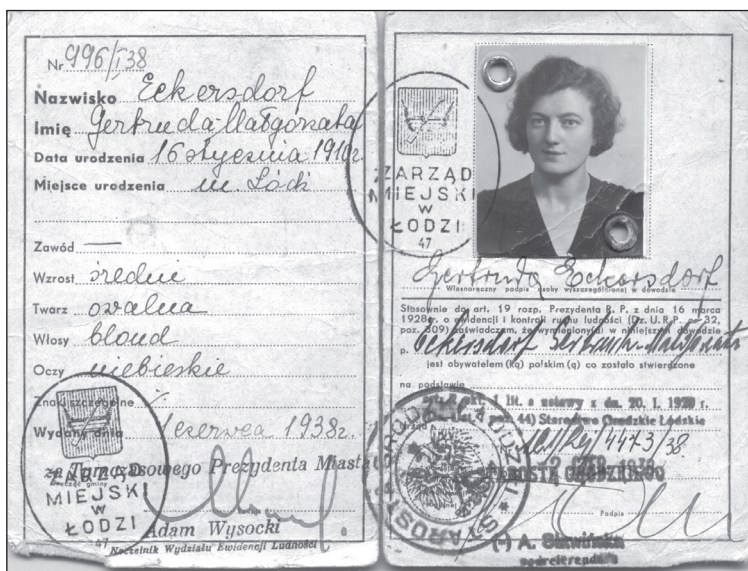 Nr 996/I/38
Nazwisko Eckersdorf
Imię Gertruda-Małgorzata
Data urodzenia 16 stycznia 1910r.
Miejsce urodzenia m. Łódź
Zawód —
Wzrost średni
Twarz owalna
Włosy blond
Oczy niebieskie
Znaki szczególne %
Wydany dnia 1 czerwca 1938r.
za Tymczasowego Prezydenta Miasta
ZARZĄD
MIEJSKI
W
ŁODZI
47
Adam Wysocki
Naczelnik Wydziału Ewidencji Ludności
ZARZĄD
MIEJSKI
W
ŁODZI
47
Gertruda Eckersdorf
Własnoręczny podpis osoby wyszczególnionej w dowodzie
Stosownie do art. 19 rozp. Prezydenta R. P. z dnia 16 marca
1928 r. o ewidencji i kontroli ruchu ludności (Dz. U. R. P. 32,
poz. 309) zaświadczam, że wymieniony(a) w niniejszym dowodzie
p. Eckersdorf Gertruda-Małgorzata
jest obywatelem (ką) polskim (ą) co zostało stwierdzone
na podstawie
1 lit. a ustawy z dn. 20. I. 1920 r.
44) Starostwo Grodzkie Łódzkie
4473/38
STAROSTA GRODZKI
Podpis
(-) A. Słowińska